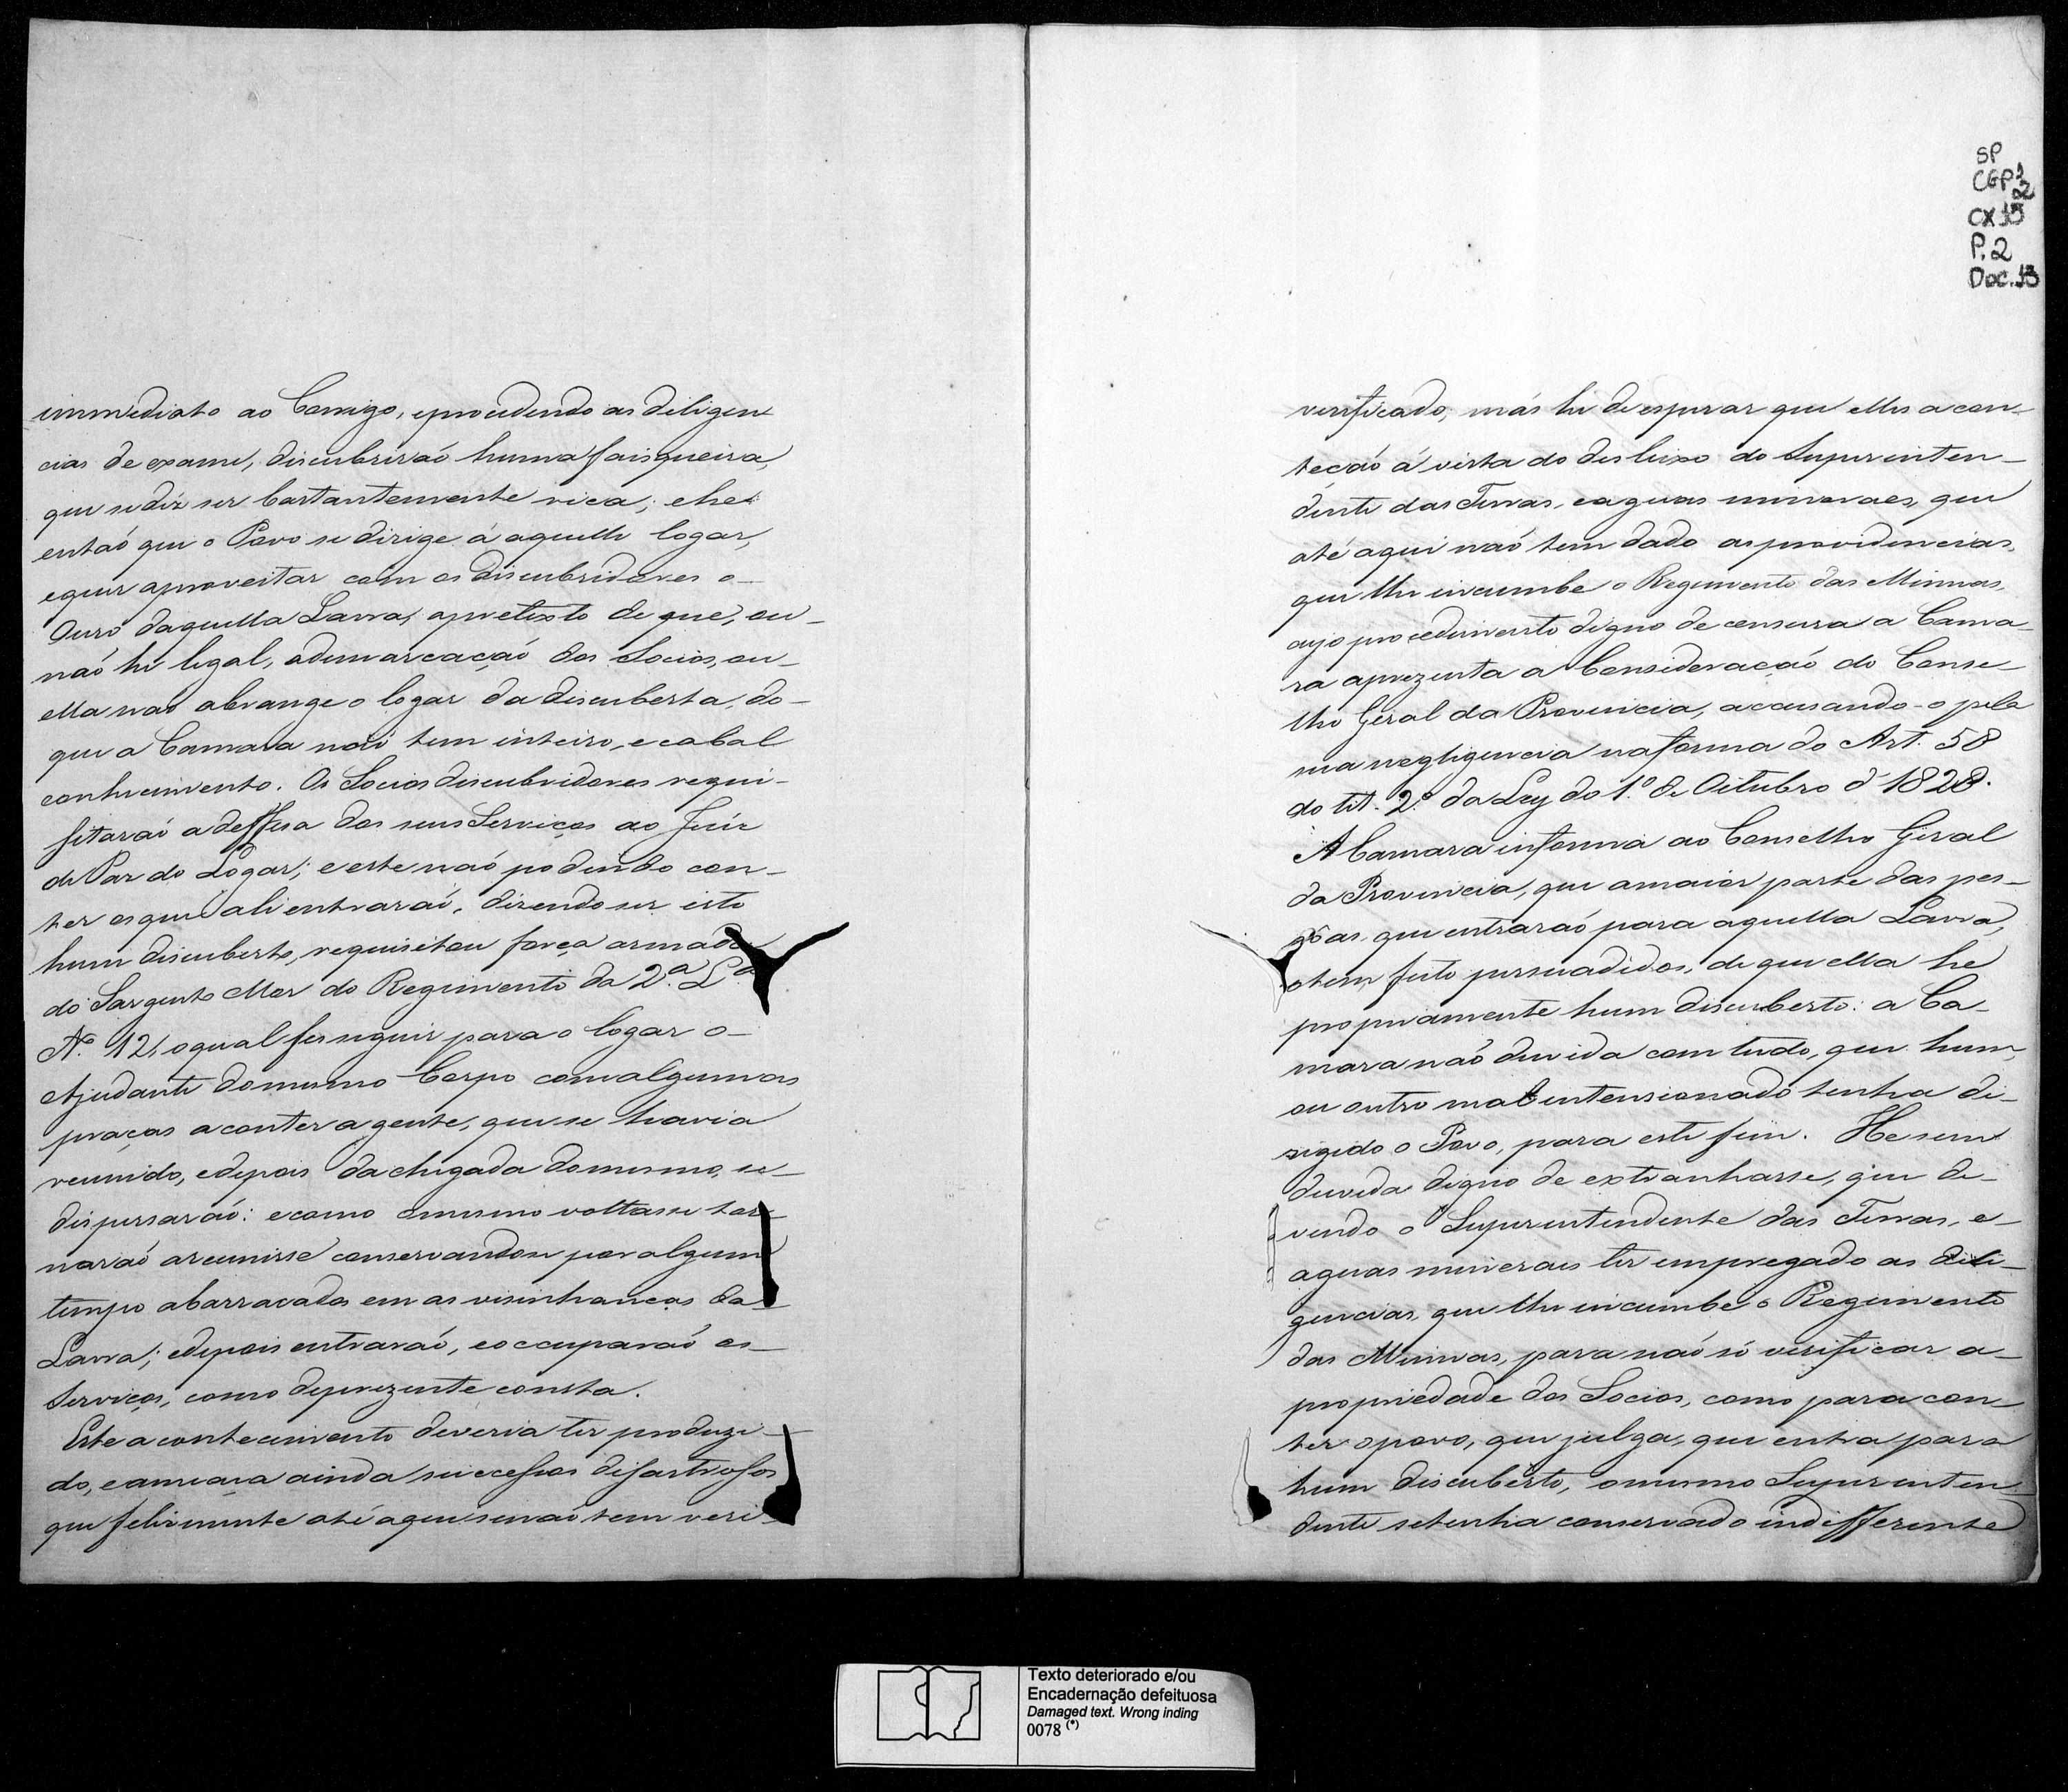 immediato ao Corrigo, eprocedendo as diligen
cias de exame, discubriraó huma faisqueira,
que sediz ser bastantemente rica; ehe
entaó que o Povo se dirige á aquelle logar,
equer aproveitar com os discubridores o-
Ouro daquella Lavra, apretexto de que, ou-
naó he legal, ademarcaçaó dos Socios, ou-
ella naó abrange o logar da discuberta, do-
que a Camara naó tem inteiro, ecabal
conhecimento. Os Socios discubridores requi-
sitaraó adeffesa dos seus Serviços ao Juiz
de Paz do Logar; eeste naó podendo con-
ter os que ali entraraó, dizendo ser isto
hum discuberto, requisitou força armada
do Sargento Mor do Regimento da 2.ª L.ª
N.º 12, oqual fes seguir para o logar o-
Ajudante domesmo Corpo comalgumas
praças aconter agente, que se havia
reunido, edepois da chegada domesmo, se-
dispersaraó: ecomo omesmo voltasse tor-
naraó areunirse conservandose por algum
tempo abarracados em as visinhanças da-
Lavra; edepois entraraó, eoccuparaó os-
Serviços, como deprezente consta.
Este acontecimento deveria ter produzi-
do, eameaça ainda successos disastrosos
que felizmente até aqui senaó tem veri-
SP
CGP 1.2
CX 13
P. 2
Doc. 13
verificado; más he de esperar que elles acon-
teçaó á vista do desleixo do Superinten-
dente das Terras, eaguas mineraes, que
até aqui naó tem dado as providencias,
que lhe incumbe o Regimento das Minnas,
cujo procedimento digno de censura a Cama-
ra aprezenta a Consideraçaó do Conse
lho Geral da Provincia, accusando-o pela
sua negligencia naforma do Art. 58
do tit. 2.º da Ley do 1.º de Oitubro d' 1828.
A Camara informa ao Conselho Geral
da Provincia, que amaior parte das pes-
sôas, que entraraó para aquella Lavra,
otem feito persuadidos, de que ella he
propriamente hum discuberto: a Ca-
mara naó duvida com tudo, que hum,
ou outro mal intensionado tenha di-
rigido o Povo, para este fim. He sem
duvida digno de extranharse, que de-
vendo o Superintendente das Terras, e-
aguas minerais ter empregado as dili-
gencias, que lhe incumbe o Regimento
das Minnas, para naó só verificar a-
propriedade dos Socios, como para con-
ter opovo, que julga, que entra para
hum discuberto, omesmo Superinten-
dente setenha conservado indifferente
Texto deteriorado e/ou
Encadernação defeituosa
Damaged text. Wrong inding
0078 (*)